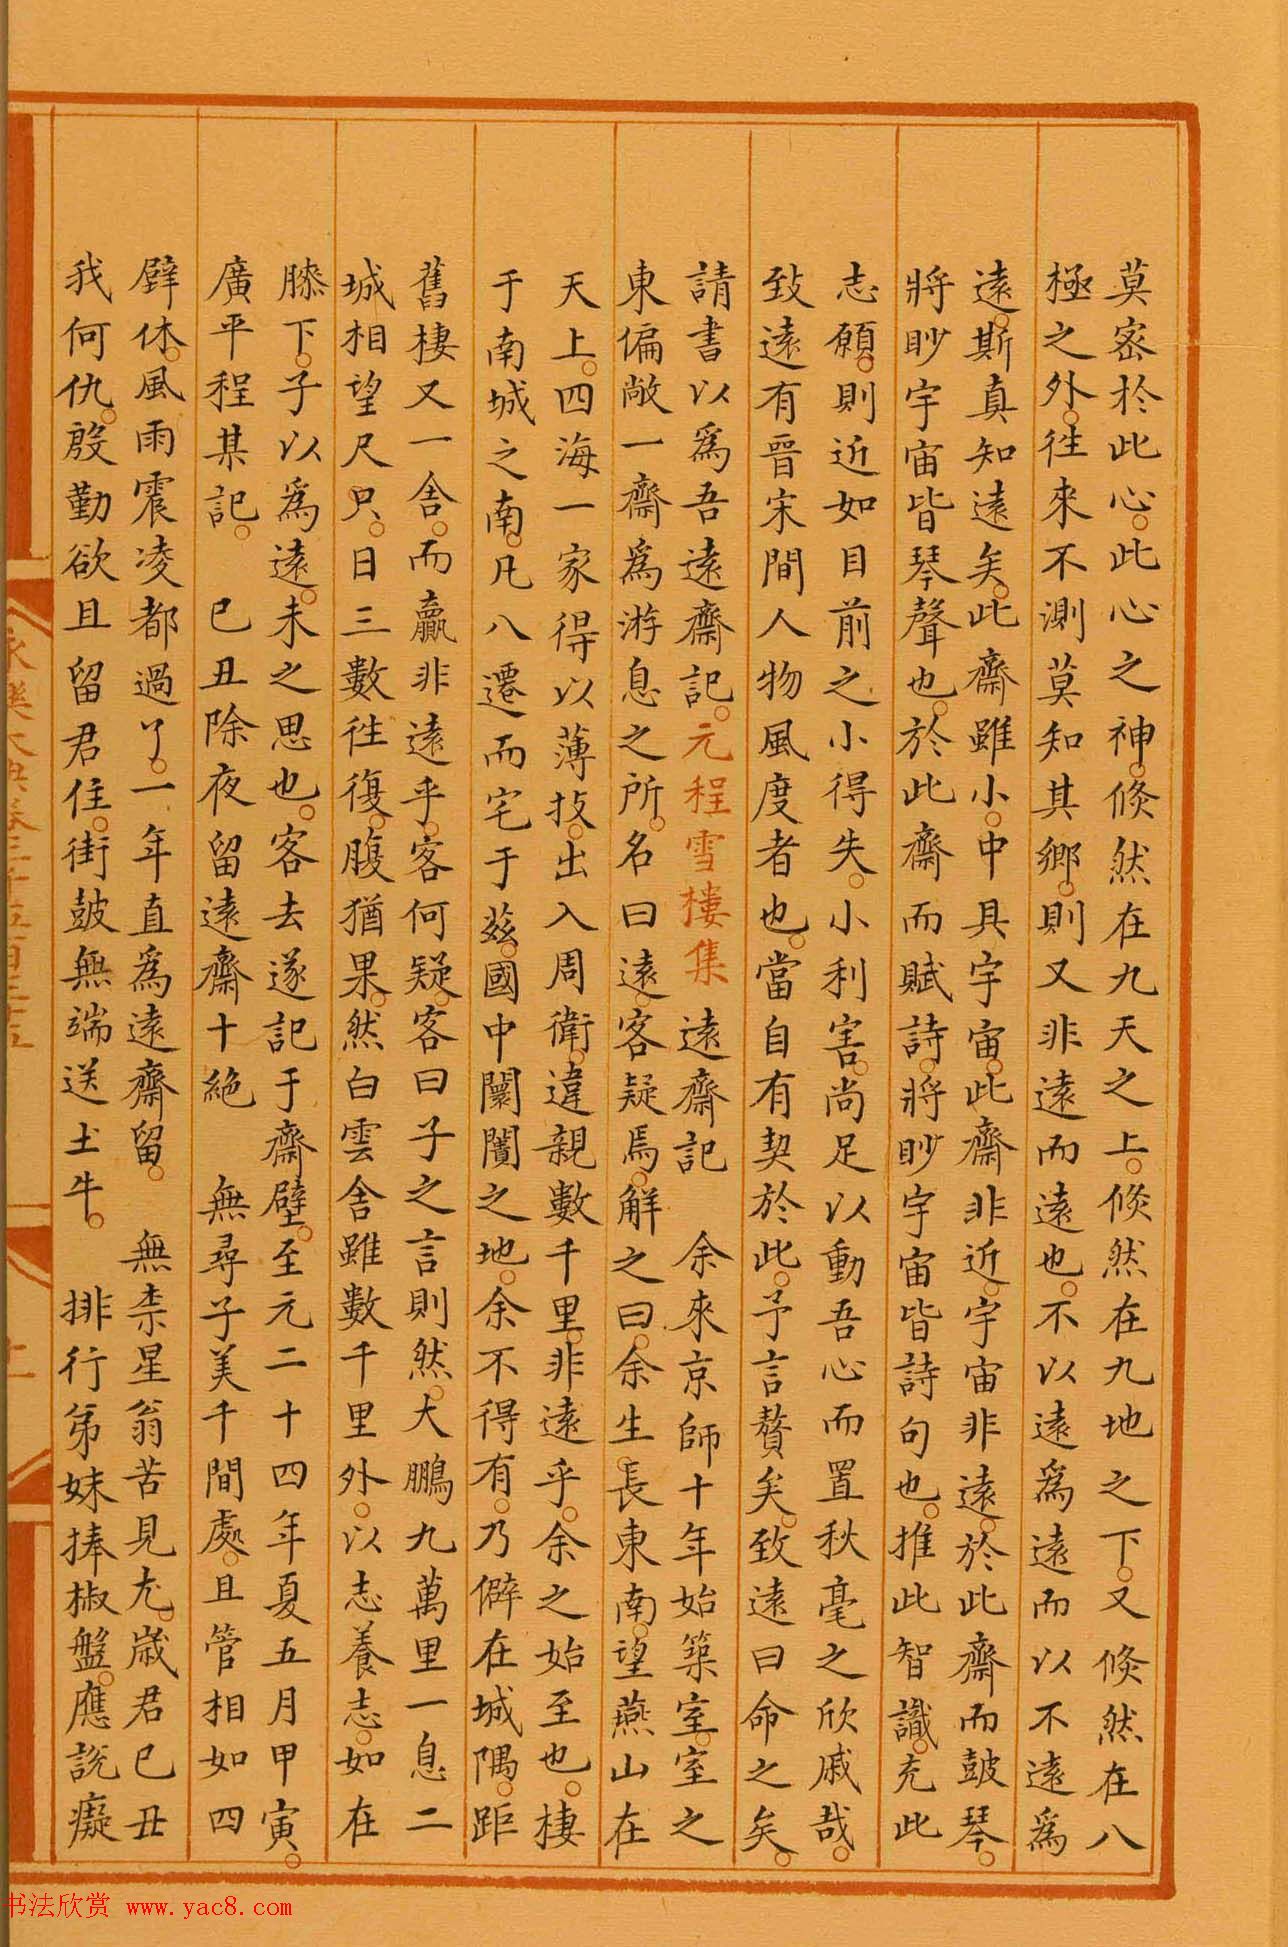 莫宻於此心。此心之神。倐然在九天之上。倐然在九地之下。又倐然在八
極之外。徃來不測莫知其鄉。則又非遠而遠也。不以遠為遠而以不遠為
遠。斯真知遠矣。此齋雖小。中具宇宙。此齋非近。宇宙非遠。於此齋而鼓琴。
將眇宇宙皆琴聲也。於此齋而賦詩。將眇宇宙皆詩句也。推此智識。充此
志願。則近如目前之小得失。小利害。尚足以動吾心而置秋毫之欣戚哉。
致遠有晉宋間人物風度者也。當自有契於此。予言贅矣。致遠曰命之矣。
請書以為吾遠齋記。元程雪樓集 遠齋記 余來京師十年始築室。室之
東偏敞一齋為游息之所。名曰遠。客疑焉。解之曰。余生長東南。望燕山在
天上。四海一家得以薄技。出入周衛。違親數千里。非遠乎。余之始至也。棲
于南城之南。凡八遷而宅于茲。國中闤闠之地。余不得有。乃僻在城隅。距
舊棲又一舍。而贏非遠乎。客何疑。客曰子之言則然。大鵬九萬里一息二
城相望尺只。日三數徃復。腹猶果。然白雲舍雖數千里外。以志養志。如在
膝下。子以為遠。未之思也。客去遂記于齋壁。至元二十四年夏五月甲寅。
廣平程某記。 巳丑除夜留遠齋十絶 無尋子美千間處。且管相如四
壁休。風雨震凌都過了。一年直為遠齋留。 無柰星翁苦見尤。歲君巳丑
我何仇。殷勤欲且留君住。街鼓無端送土牛。 排行弟妹捧椒盤。應說癡
書法欣赏 www.yac8.com